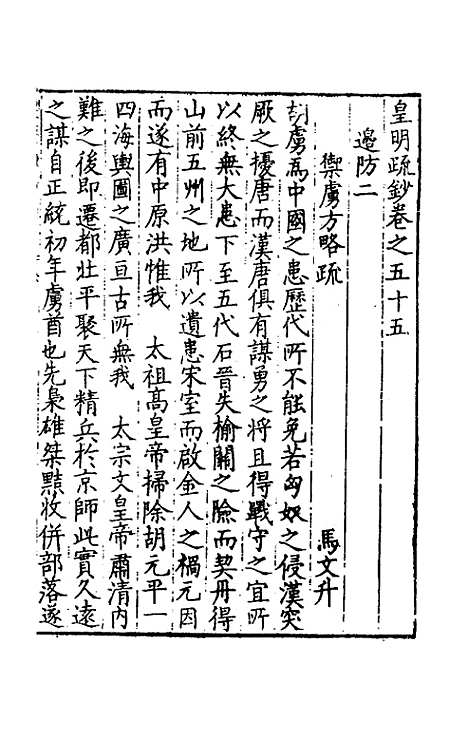 皇明疏鈔卷之五十五
邊防二
禦虜方略疏　馬文升
虜爲中國之患歷代所不能免若匈奴之侵漢突
厥之擾唐而漢唐俱有謀勇之將且得戰守之宜所
以終無大患下至五代石晉失榆關之險而契丹得
山前五州之地所以遺患宋室而啟金人之禍元因
而遂有中原洪惟我　太祖高皇帝掃除胡元平一
四海輿圖之廣亘古所無我　太宗文皇帝肅清內
難之後即遷都北平聚天下精兵於京師此實久遠
之謀自正統初年虜酋也先梟雄桀黠收併部落遂